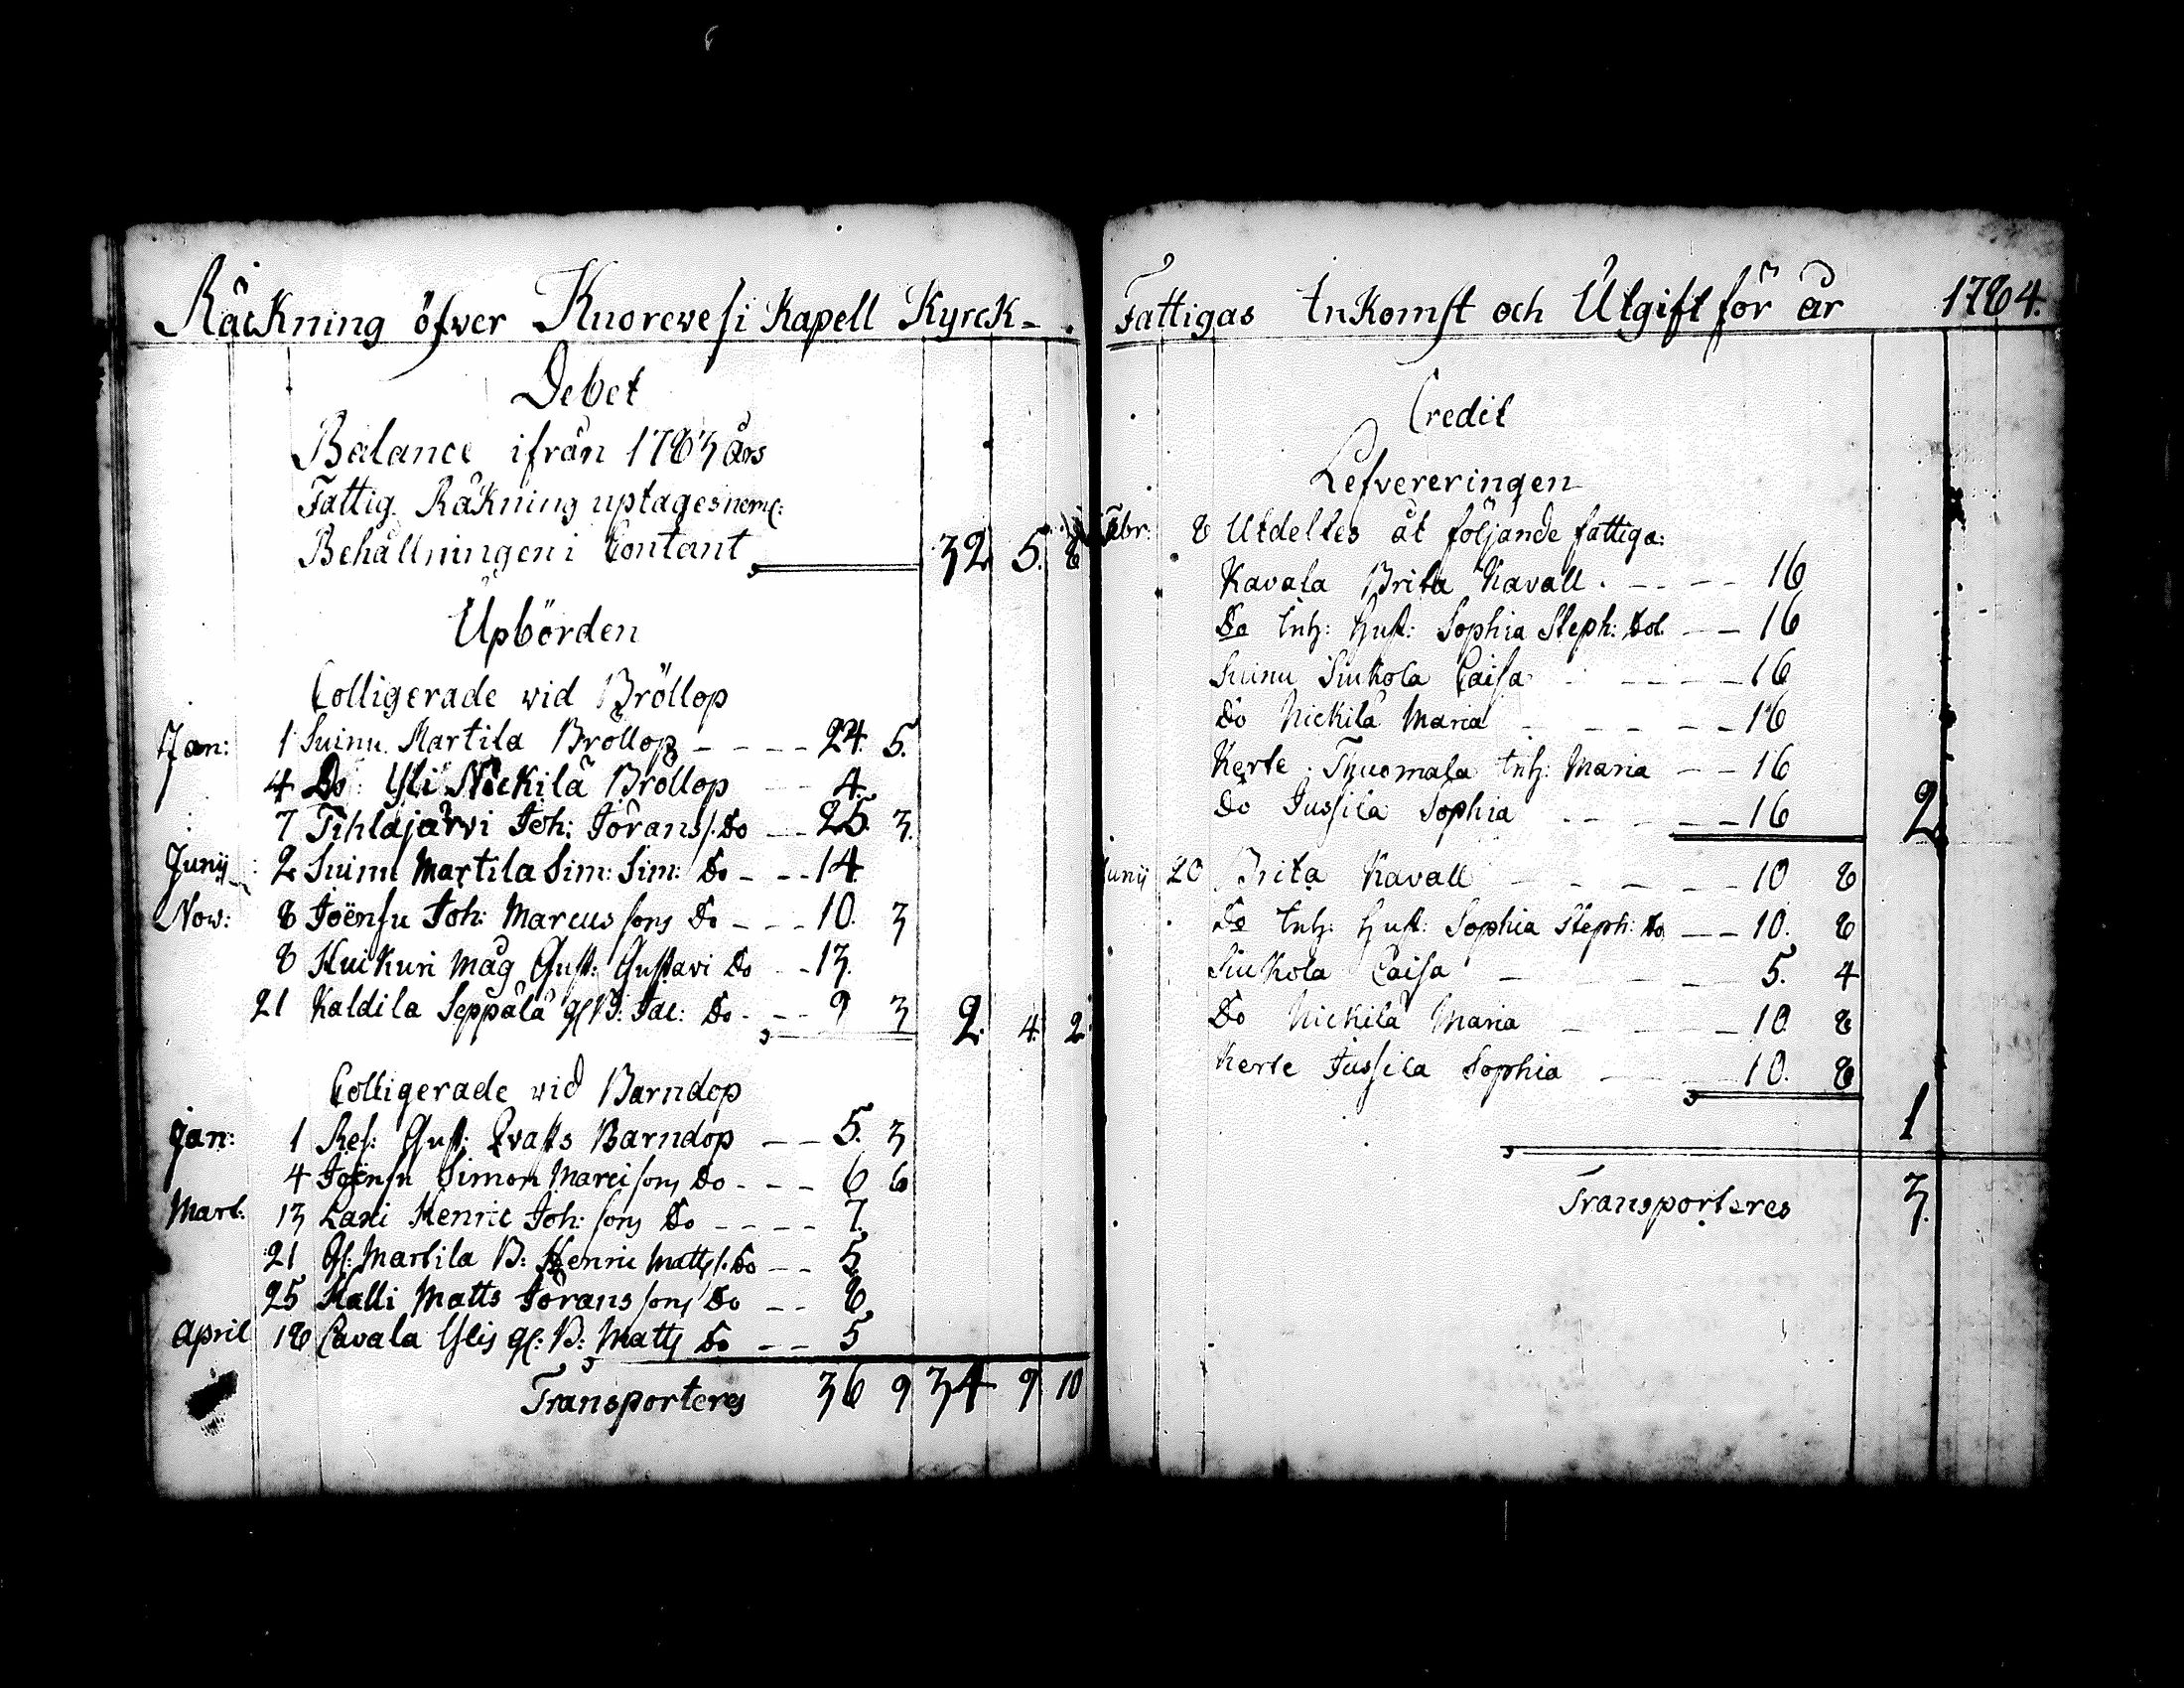 Räckning öfwer Kuorewesi Kapell Kyrck=
Debet
Balance ifrån 1783 års
Fattig. Räkning uptages neml:
Behållningen i Contant 32 5. 8
Upbörden
Colligerade wid Bröllop
Jan: 1 Suinu Martila Bröllop - - - - 24. 5.
4 Do Yli Nickilä Bröllop - - 4.
7 Pihlajärvi Joh: Jörans s. Do - - 25. 3.
Junij 2 Suinu Martila Sim: Sim: Do - - - 14
Now: 8 Joënsu Joh: Marcus sons Do - - - 10. 3
8 Kuikuri måg Gust: Gustavi Do - - 13.
21 Kaldila Seppälä Jac: Do - - - 9 3 2. 4. 2
Colligerade wid Barndop
Jan: 1 Gust: Qvasts Barndop - - 5. 3
4 Joënsu Simon Marci sons Do - - - 6 6
Mart: 13 Lari Henric Joh: sons Do - - - - 7.
21 Martila B: Henric Matts s. Do - - 5.
25 Halli Matts Jörans sons Do - - 8.
April 18 Cavala Ylis B: Matts Do - - 5
Transporteres 36 9 34 9 10
Fattigas Inkomst och Utgift för år 1784.
Credit
Lefvereringen
Febr: 8 Utdeltes åt följande fattiga:
Kavala Brita Kavall - - - - 16
Do Inh: Hust: Sophia Steph: Dot. - - 16
Suinu Siukola Caisa - - - - 16
Do Nickilä Maria - - - - 16
Kerte Tuomala Inh: Maria - - 16
Do Jussila Sophia - - - - 16 2.
Junij 20 Brita Kavall - - - - - 10 8
Do Inh: Hust: Sophia Steph: Do - - 10. 8
Siukola Caisa - - - - 5. 4
Do Nickilä Maria - - - - 10 8
Kerte Jussila Sophia - - - 10. 8
1
Transporteres 3.